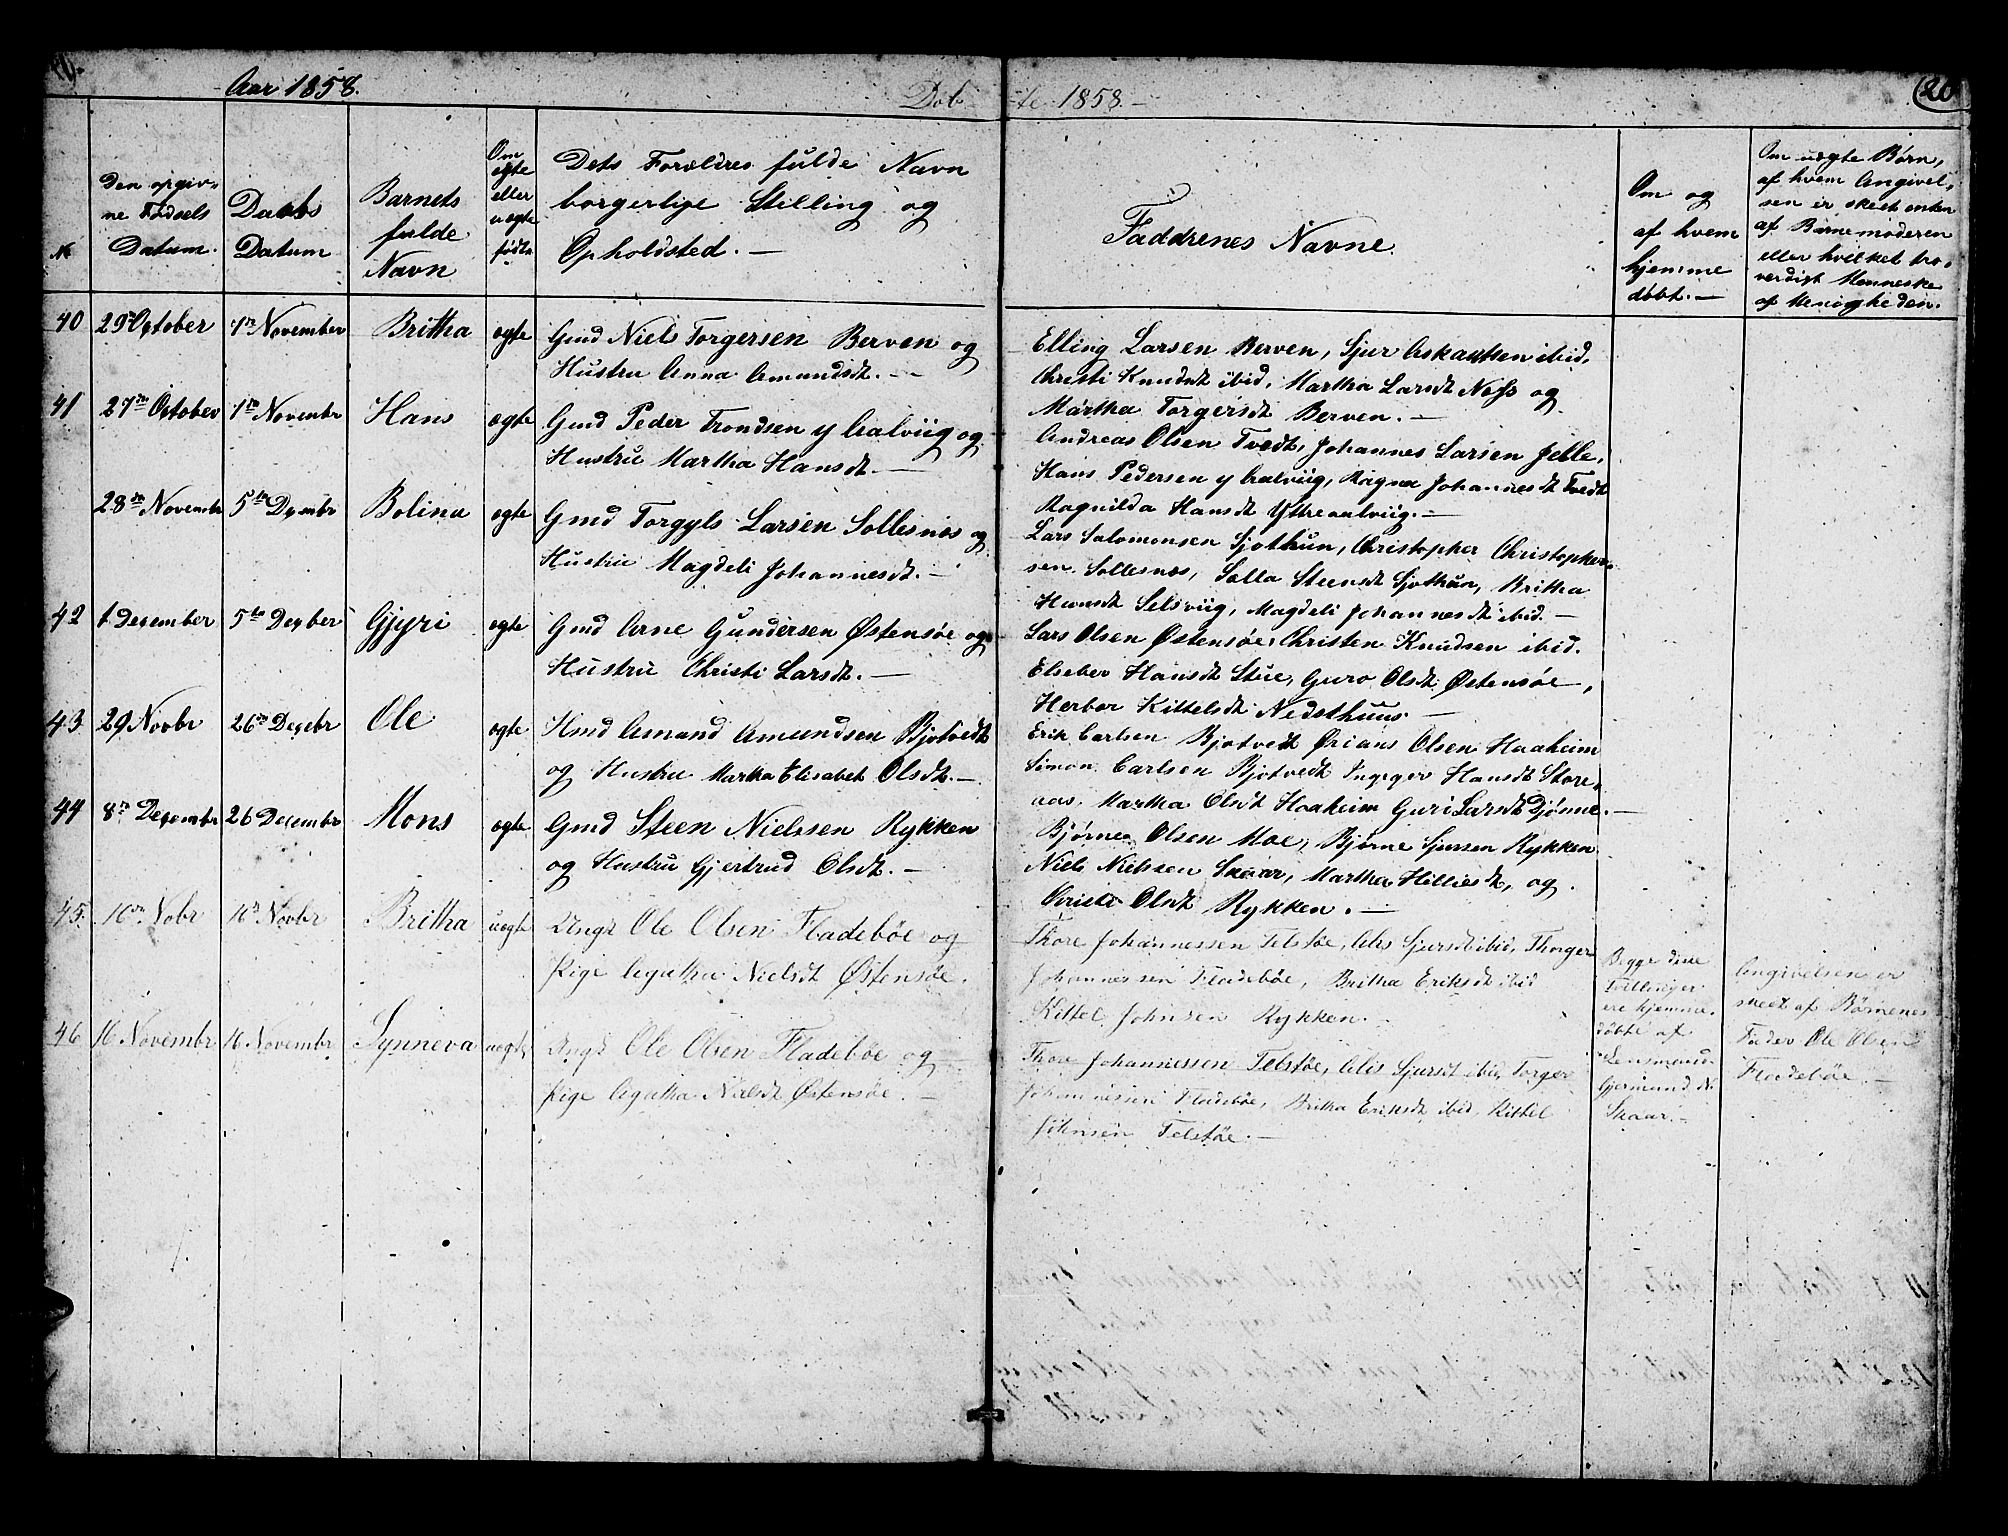 Aar 1858.
Døbte 1858.
20
№
Den opgivne Fødsels Datum.
Daabs Datum
Barnets fulde Navn
Om ægte eller uægte født.
Dets Forældres fulde Navn borgerlige Stilling og Opholdsted.
Faddrenes Navne.
Om og af hvem hjemme døbt.
Om uægte Børn, af hvem Angivelsen er skeet enten af Barnemoderen eller hvilket troverdigt Menneske af Menigheden.
40 29 October 7de November Britha ægte Gmd Niels Torgersen Berven og
Hustru Anna Amundsdt.
Elling Larsen Berven, Sjur Askautsen ibid,
Christi Knudsdt ibid, Martha Larsdt Næss og
Martha Torgersdt Berven.
41 27de October 7de Novembr Hans ægte Gmd Peder Trondsen y Aalviig og
Hustru Martha Hansdt.
Andreas Olsen Tvedt, Johannes Larsen Jelle,
Hans Pedersen y Aalviig, Ragna Johannesdt Tvedt
Ragnilda Hansdt Ytreaalviig.
28de Novembr 5te Decembr Bolina ægte Gmd Torgyls Larsen Sollesnæs og
Hustru Magdeli Johannesdt.
Lars Salomonsen Sjothun, Christopher Christophersen
Sollesnæs, Salla Steensdt Sjothun, Britha
Hansdt Selsviig, Magdeli Johannesdt ibid.
42 1 December 5te Decbber Gjyri ægte Gmd Arne Gundersen Østensøe og
Hustru Christi Larsdt.
Lars Olsen Østensøe, Christen Knudsen ibid.
Elseber Hansdt Stue, Guro Olsdt Østensøe,
Herbor Kittelsdt Nedsthuus.
43 29 Novbr 26de Decebr Ole ægte Hmd Amund Amundsen Bjotvedt
og Hustru Martha Elisabet Olsdt.
Erik Carlsen Bjotvedt Ørians Olsen Haaheim
Simon Carlsen Bjotvedt Ingeger Hansdt Store,
aas, Martha Olsdt Haaheim Guri Larsdt Djønne.
44 8de Decembr 26 Decembr Mons ægte Gmd Steen Nielssen Rykken
og Hustru Gjertrud Olsdt.
Bjørne Olsen Moe, Bjørne Sjursen Rykken
Niels Nielssen Skaar, Martha Hilliesdt, og
Christi Olsdt Rykken.
45. 16de Nobr 16de Novbr Britha uægte Ungk Ole Olsen Fladebøe og
Pige Agatha Nielsdt Østensøe.
Thore Johannessen Telstøe, Alis Sjursdt ibid, Thorger
Johannessen Fladebøe, Britha Eriksdt ibid
Kittel Johnsen Rykken.
46 16 Novembr 16 Novembr Synneva uægte Ungk Ole Olsen Fladebøe og
Pige Agatha Nielsdt Østensøe.
Thore Johannessen Telstøe, Alis Sjursdt ibid, Torger
Johannessen Fladebøe, Britha Eriksdt ibid, Kittel
Johnsen Telstøe.
Begge disse
Tvillinger
ere hjemme
døbte af
Lensmand
Gjermund N.
Skaar.
Angivelsen er
skeet af Børnenes
Fader Ole Olsen
Fladebøe.